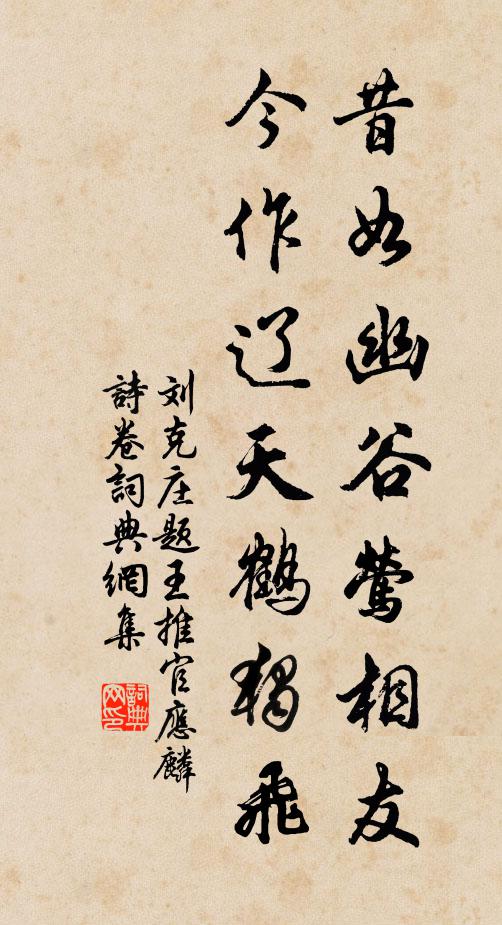 昔如幽谷莺相友
今作辽天鹤独飛
刘克庄题王推官應麟
詩卷詞典網集
詞典
网印